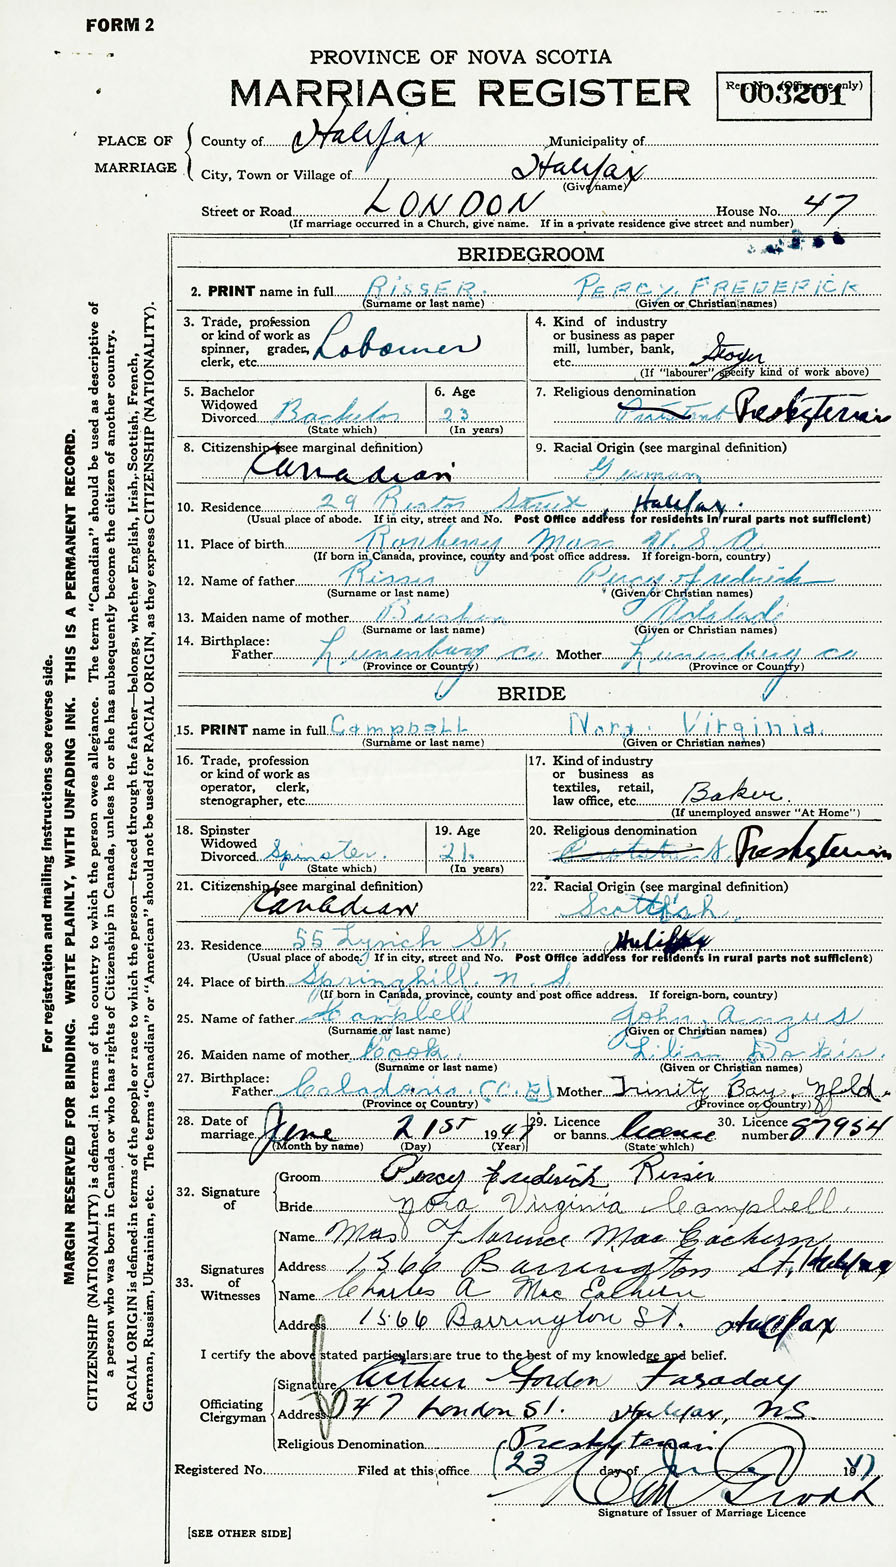 FORM 2
PROVINCE OF NOVA SCOTIA
MARRIAGE REGISTER
Reg. No. (Office use only)
003201
PLACE OF MARRIAGE
County of Halifax Municipality of
City, Town or Village of Halifax
(Give name)
Street or Road LONDON House No. 47
(If marriage occurred in a Church, give name. If in a private residence give street and number)
BRIDEGROOM
2. PRINT name in full RISSER. PERCY FREDERICK
(Surname or last name) (Given or Christian names)
3. Trade, profession or kind of work as spinner, grader, clerk, etc. Labourer
4. Kind of industry or business as paper mill, lumber, bank, etc.
(If "labourer" specify kind of work above)
5. Bachelor Widowed Divorced Bachelor
(State which)
6. Age 23
(In years)
7. Religious denomination Presbyterian
8. Citizenship (see marginal definition) Canadian
9. Racial Origin (see marginal definition) German
10. Residence 29 Street, Halifax.
(Usual place of abode. If in city, street and No. Post Office address for residents in rural parts not sufficient)
11. Place of birth Roxberry Mass U.S.A
(If born in Canada, province, county and post office address. If foreign-born, country)
12. Name of father Risser Percy Fredrick
(Surname or last name) (Given or Christian names)
13. Maiden name of mother
(Surname or last name) (Given or Christian names)
14. Birthplace:
Father Lunenburg co Mother Lunenburg co
(Province or Country) (Province or Country)
BRIDE
15. PRINT name in full Campbell Nora Virginia.
(Surname or last name) (Given or Christian names)
16. Trade, profession or kind of work as operator, clerk, stenographer, etc.
17. Kind of industry or business as textiles, retail, law office, etc. Baker.
(If unemployed answer "At Home")
18. Spinster Widowed Divorced Spinster.
(State which)
19. Age 21.
(In years)
20. Religious denomination Presbyterian
21. Citizenship (see marginal definition) Canadian
22. Racial Origin (see marginal definition) Scottish
23. Residence 55 Lynch St. Halifax
(Usual place of abode. If in city, street and No. Post Office address for residents in rural parts not sufficient)
24. Place of birth Springhill. N.S
(If born in Canada, province, county and post office address. If foreign-born, country)
25. Name of father Campbell John, Angus
(Surname or last name) (Given or Christian names)
26. Maiden name of mother Cook. Lilian
(Surname or last name) (Given or Christian names)
27. Birthplace:
Father Caladonia. (C.B) Mother Trinity Bay, Nfld.
(Province or Country) (Province or Country)
28. Date of marriage June 21st 1947
(Month by name) (Day) (Year)
29. Licence or banns licence
(State which)
30. Licence number 87954
32. Signature of
Groom Percy Fredrick Risser
Bride Nora Virginia Campbell.
33. Signatures of Witnesses
Name Mrs Florence Mac Eachern
Address 1566 Barrington St, Halifax
Name Charles A Mac
Address 1566 Barrington St. Halifax
I certify the above stated particulars are true to the best of my knowledge and belief.
Officiating Clergyman
Signature Arthur Gordon Faraday
Address 47 London St. Halifax, N.S.
Religious Denomination Presbyterian
Registered No. Filed at this office 23 day of June 1947
Signature of Issuer of Marriage Licence
[SEE OTHER SIDE]
For registration and mailing instructions see reverse side.
MARGIN RESERVED FOR BINDING. WRITE PLAINLY, WITH UNFADING INK. THIS IS A PERMANENT RECORD.
CITIZENSHIP (NATIONALITY) is defined in terms of the country to which the person owes allegiance. The term "Canadian" should be used as descriptive of
a person who was born in Canada or who has rights of Citizenship in Canada, unless he or she has subsequently become the citizen of another country.
RACIAL ORIGIN is defined in terms of the people or race to which the person—traced through the father—belongs, whether English, Irish, Scottish, French,
German, Russian, Ukrainian, etc. The terms "Canadian" or "American" should not be used for RACIAL ORIGIN, as they express CITIZENSHIP (NATIONALITY).